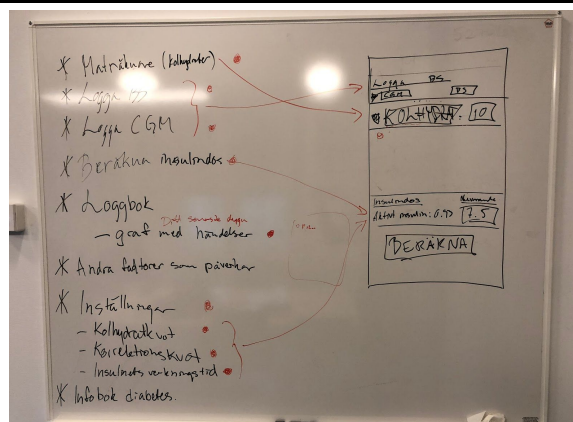 * Maträknare (kolhydrater)
* Logga BS
* Logga CGM
* Beräkna insulindos
* Loggbok
Det senaste dygn
- graf med händelser
* Andra faktorer som påverkar
* Inställningar
- Kolhydratkvot
- Korrektionskvot
- Insulinets verkningstid
* Infobok diabetes.
Logga BS
CGM BS
KOLHYDRA. 10
Insulindos
Aktivt insulin: 0.93 7.5
BERÄKNA